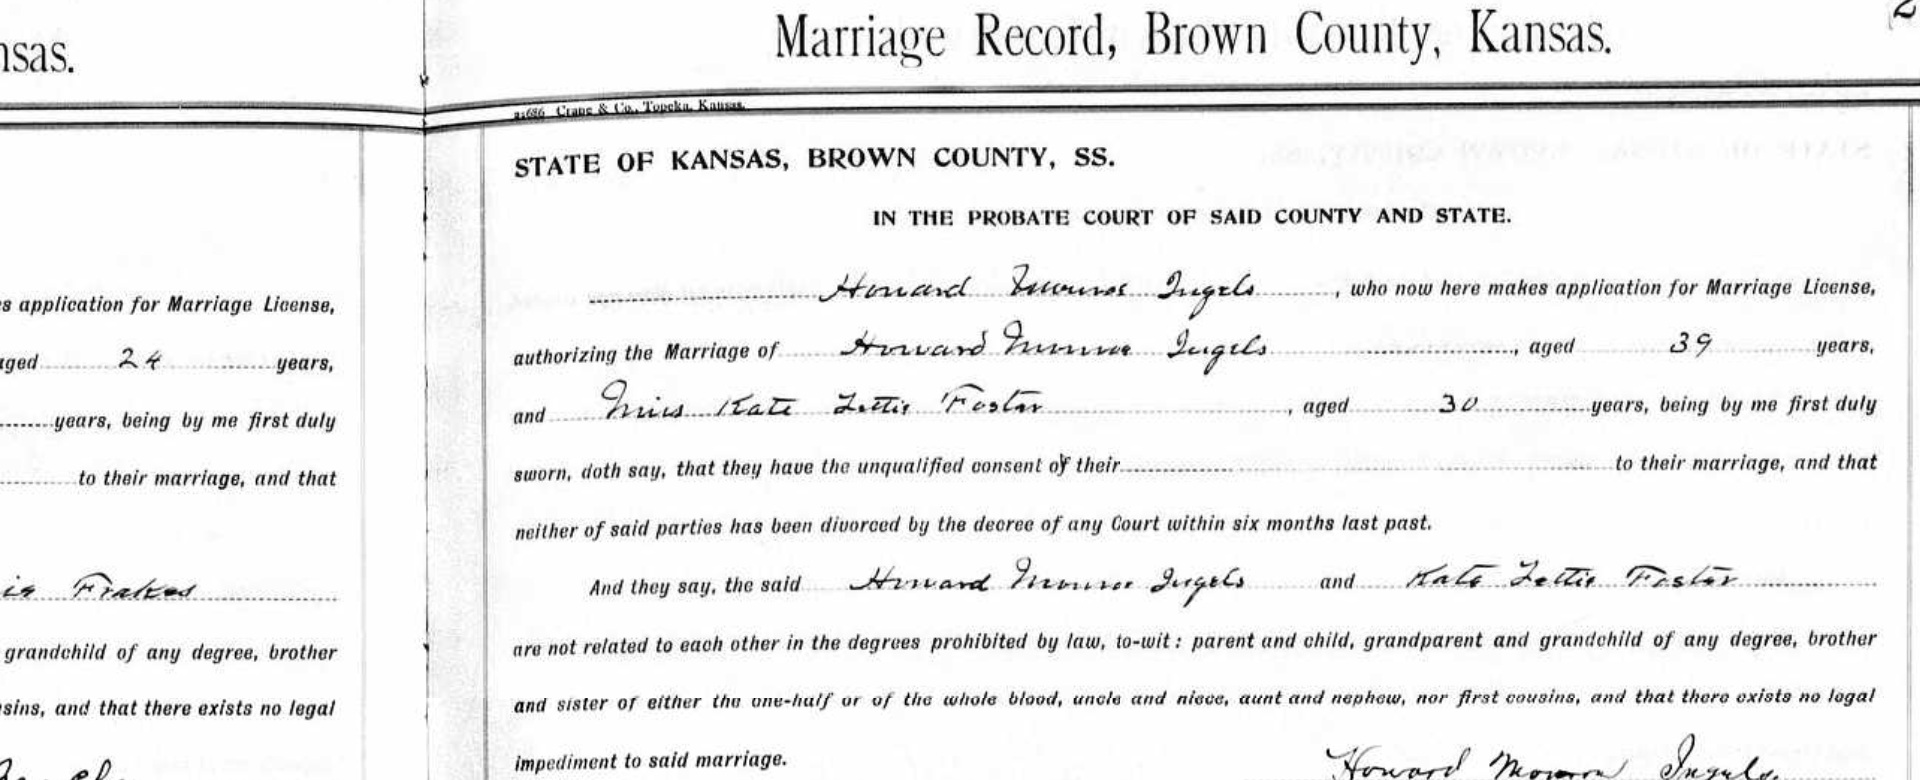 nsas.
s application for Marriage License,
aged 24 years,
years, being by me first duly
to their marriage, and that
Frakes
grandchild of any degree, brother
sins, and that there exists no legal
Marriage Record, Brown County, Kansas.
2
21686 Crane & Co., Topeka, Kansas.
STATE OF KANSAS, BROWN COUNTY, SS.
IN THE PROBATE COURT OF SAID COUNTY AND STATE.
Howard Monroe Ingels, who now here makes application for Marriage License,
authorizing the Marriage of Howard Monroe Ingels, aged 39 years,
and Miss Kate Lettie Foster, aged 30 years, being by me first duly
sworn, doth say, that they have the unqualified consent of their to their marriage, and that
neither of said parties has been divorced by the decree of any Court within six months last past.
And they say, the said Howard Monroe Ingels and Kate Lettie Foster
are not related to each other in the degrees prohibited by law, to-wit: parent and child, grandparent and grandchild of any degree, brother
and sister of either the one-half or of the whole blood, uncle and niece, aunt and nephew, nor first cousins, and that there exists no legal
impediment to said marriage.
Howard Monroe Ingels.